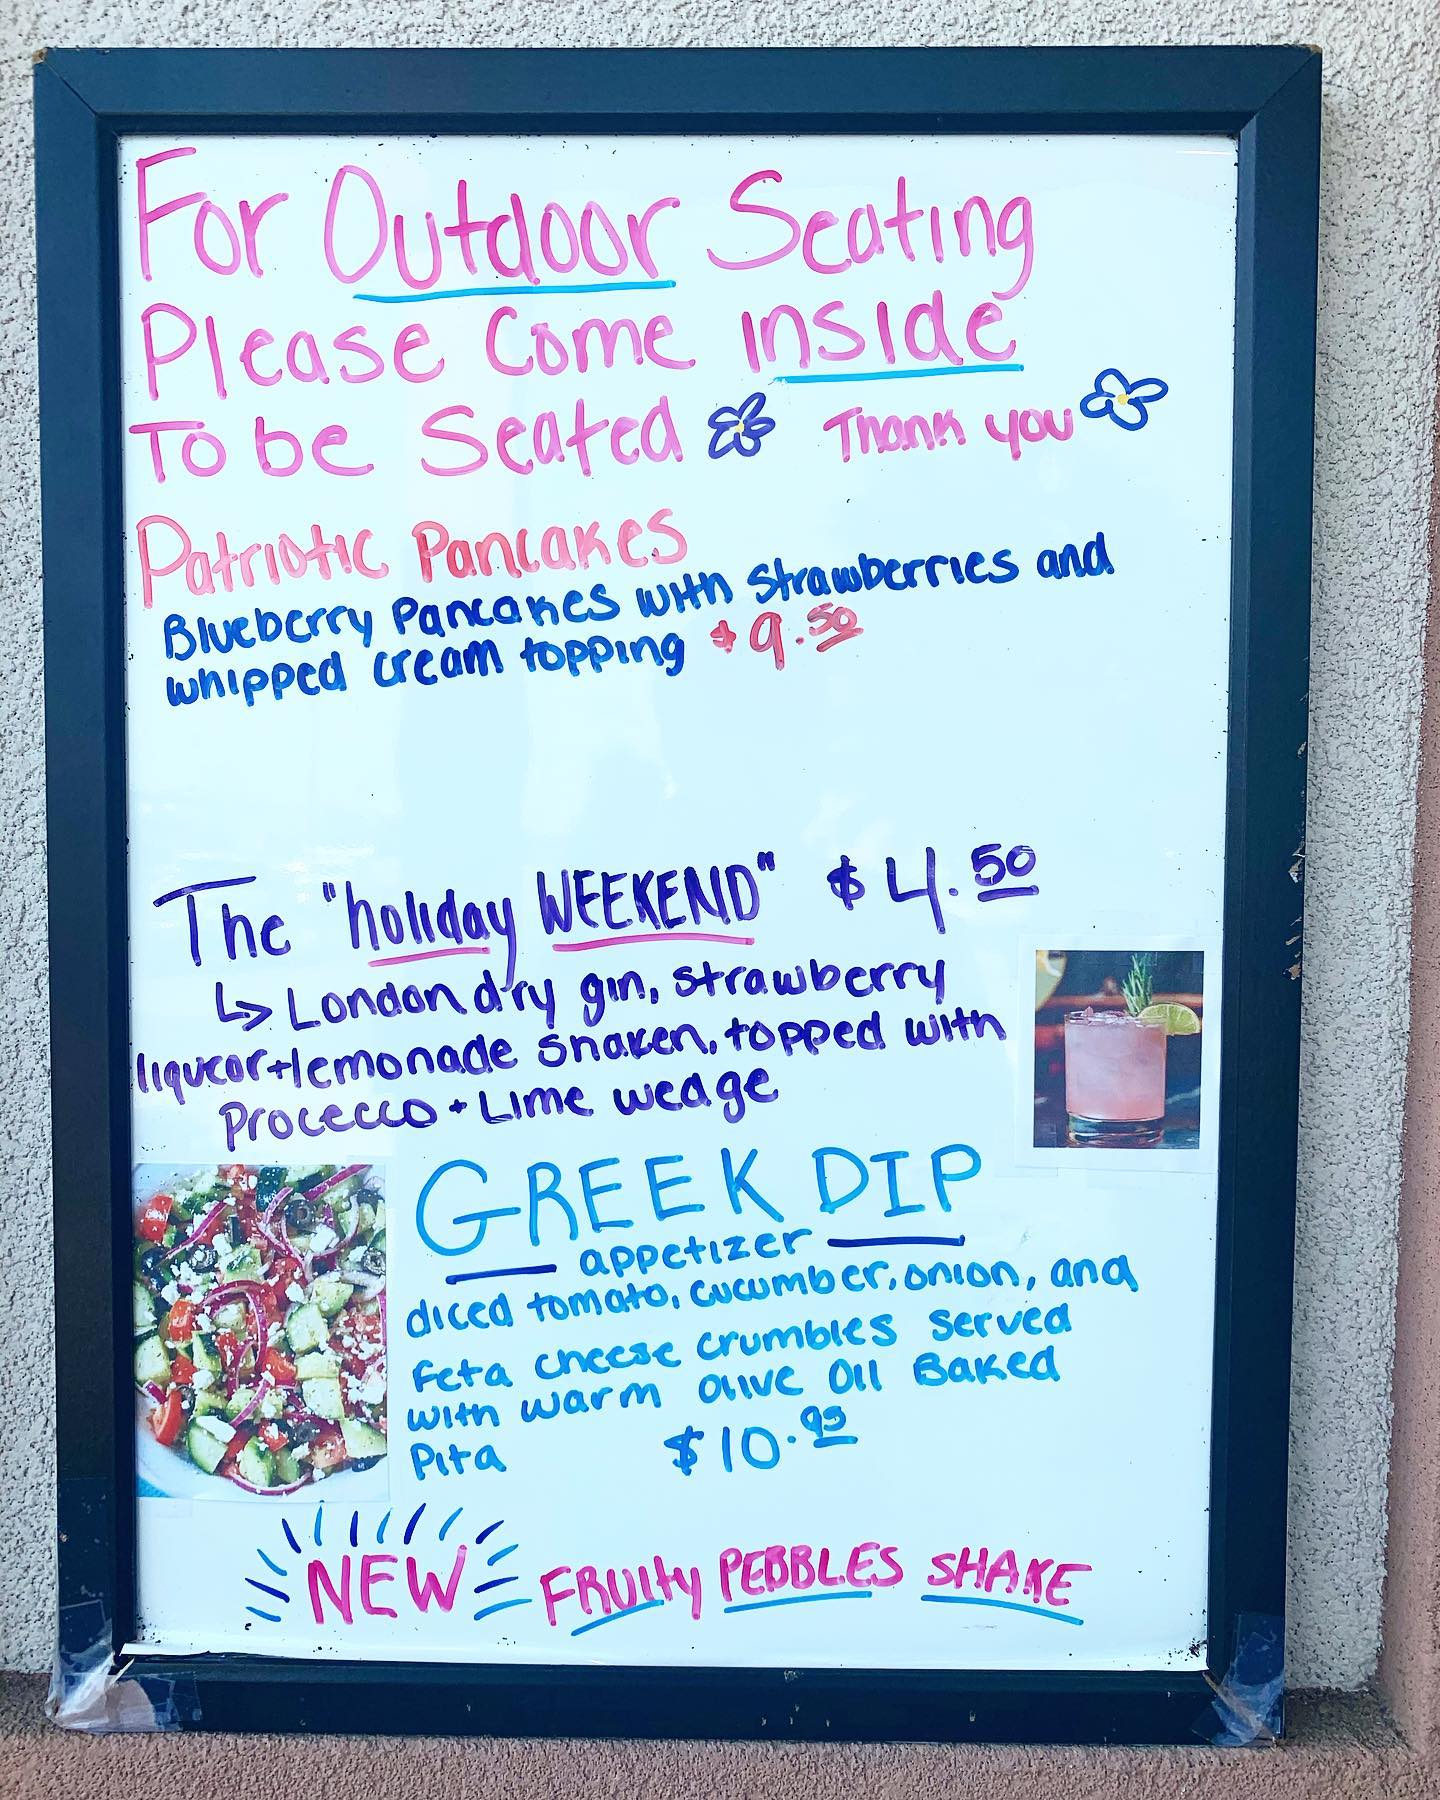 For Outdoor Seating
Please Come Inside
To be Seated Thank you
Patriotic Pancakes
Blueberry Pancakes with strawberries and
whipped cream topping $9.50
The "holiday WEEKEND" $4.50
↳ London dry gin, strawberry
liqueor+lemonade shaken, topped with
Procecco + Lime wedge
GREEK DIP
appetizer
diced tomato, cucumber, onion, and
feta cheese crumbles served
with warm olive oil Baked
Pita $10.95
NEW FRUITY PEBBLES SHAKE